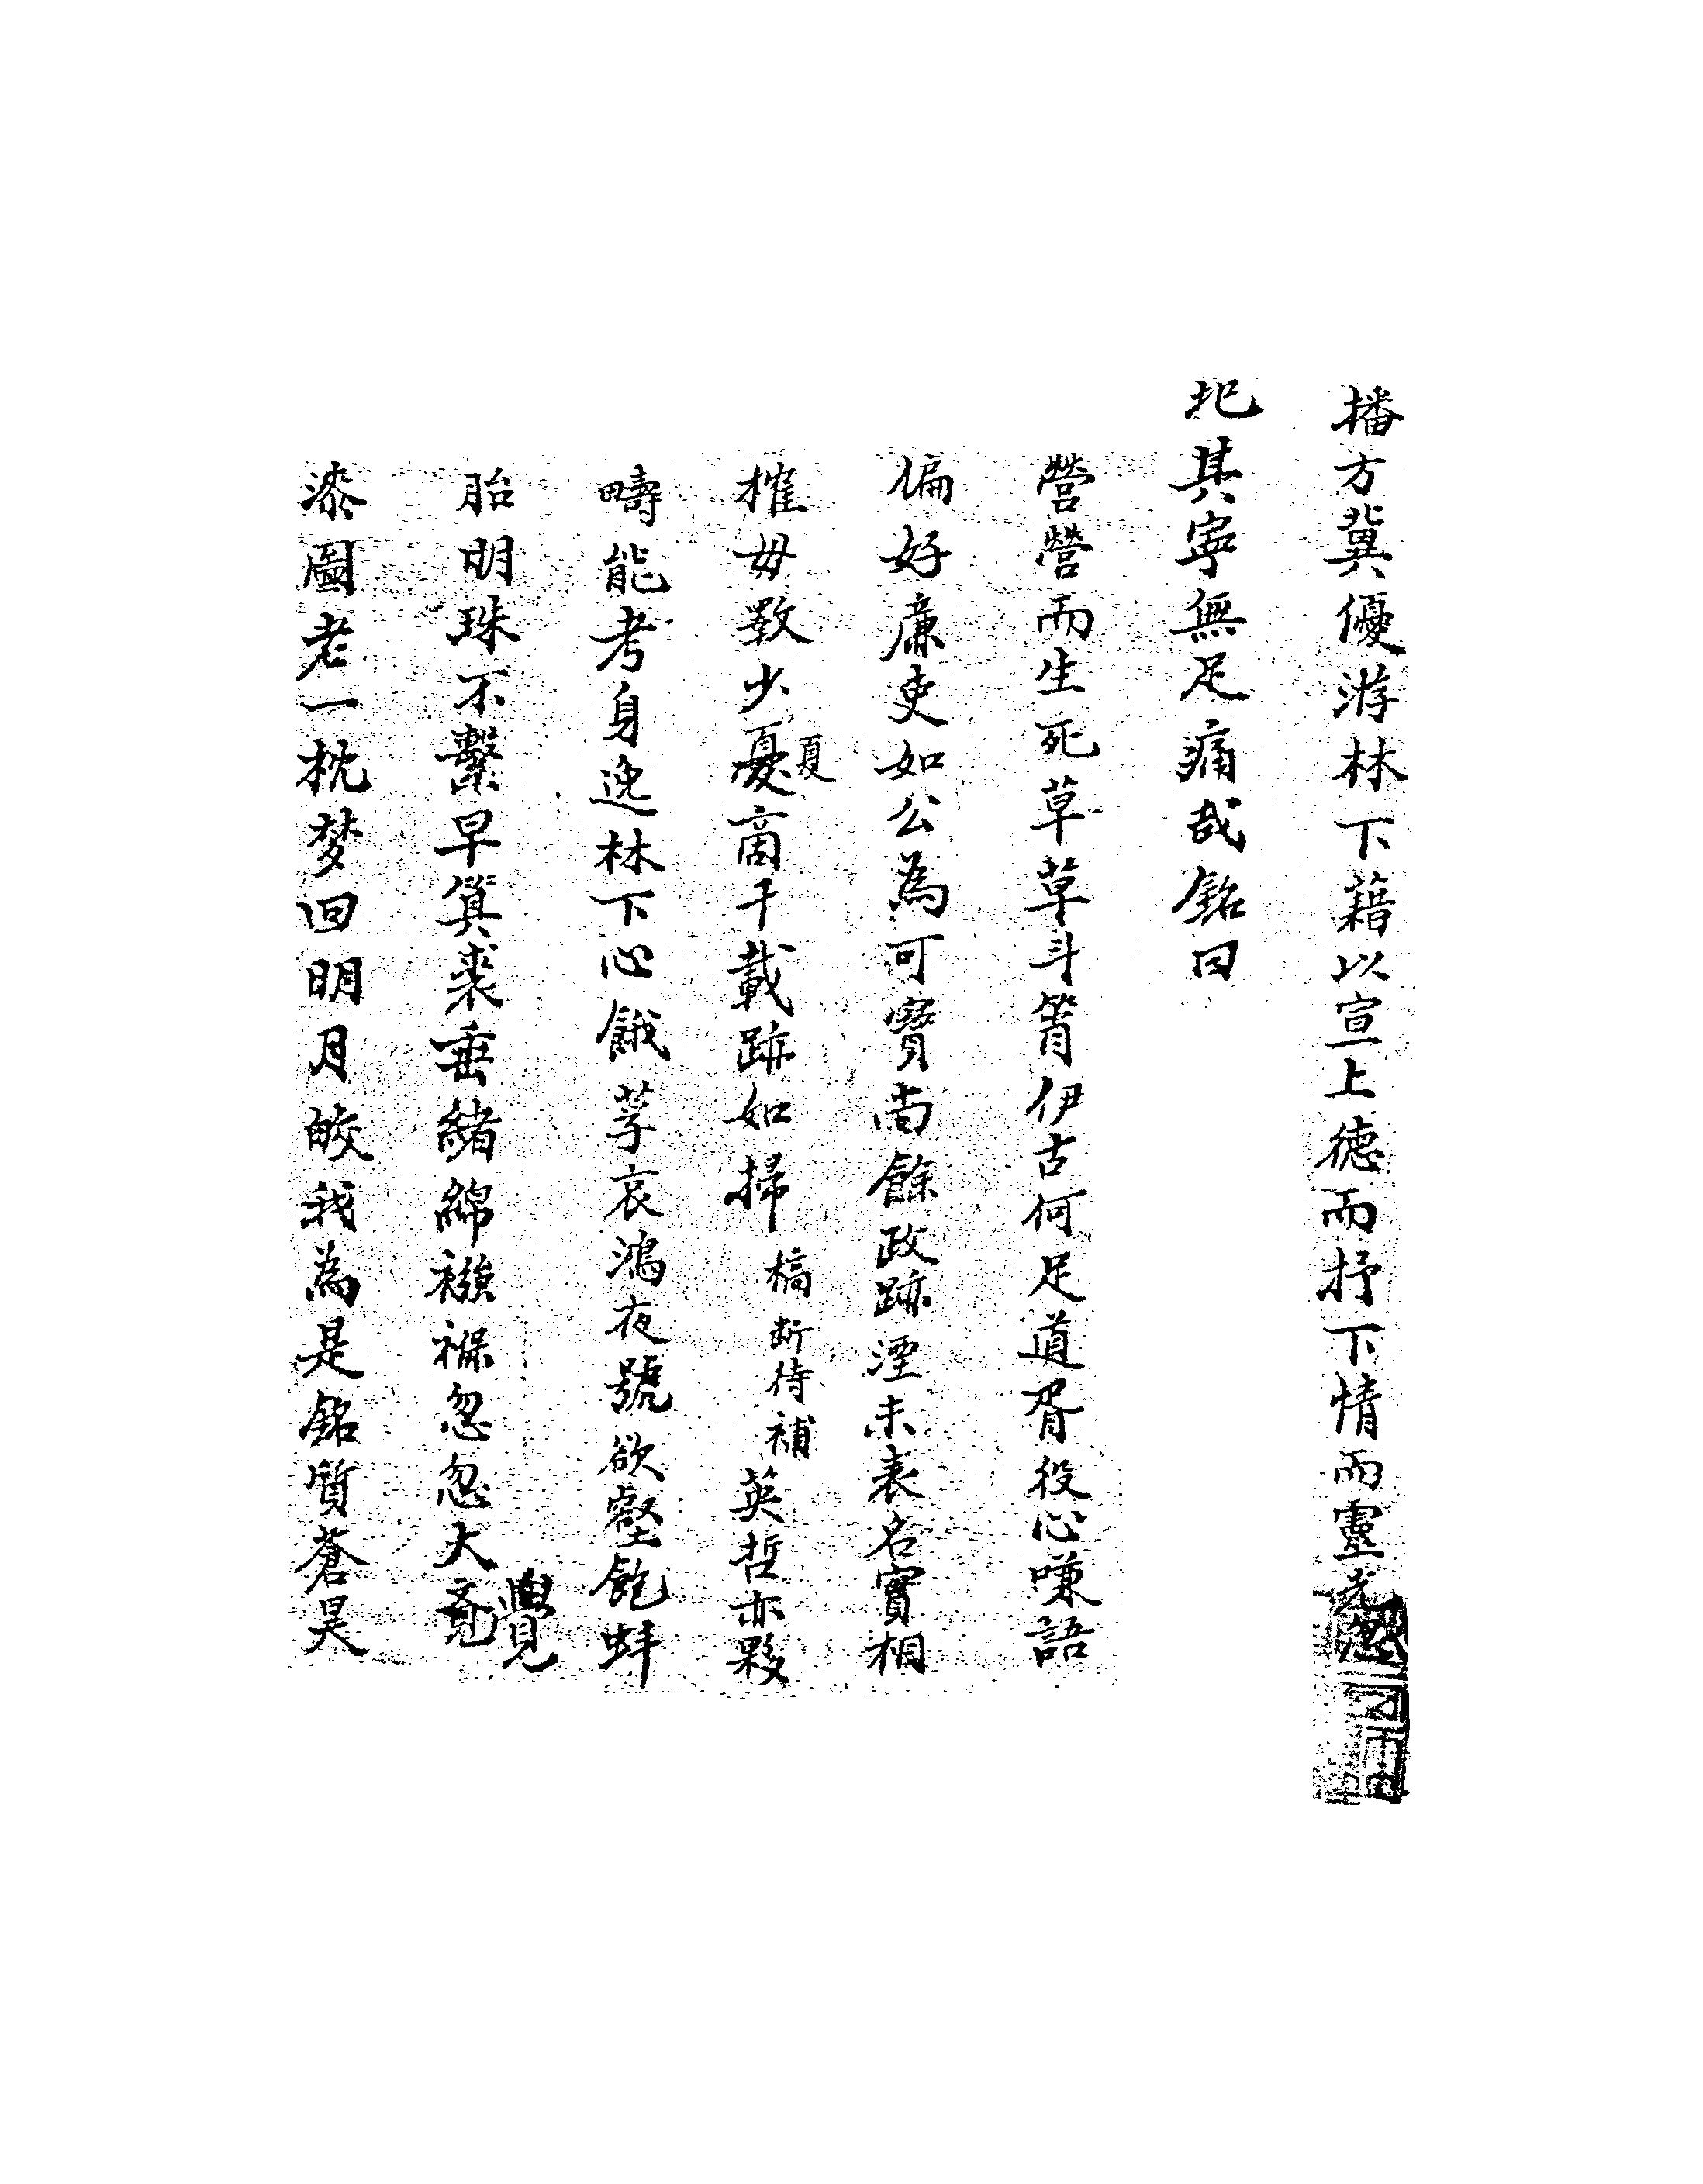 播方冀優游林下藉以宣上德而抒下情而靈光
圮其寧無足痛哉銘曰
營營而生死草草斗筲伊古何足道胥役心嗛語
偏好廉吏如公為可寶尚餘政跡湮未表名實相
搉毋斁少憂夏啇千載跡如掃稿断待補英哲亦夥
疇能考身逸林下心餓莩哀鴻夜號欲壑飽蚌
胎明珠不繫早箕裘垂緒綿襁褓忽忽大覺
漆園老一枕梦回明月皎我為是銘質蒼昊